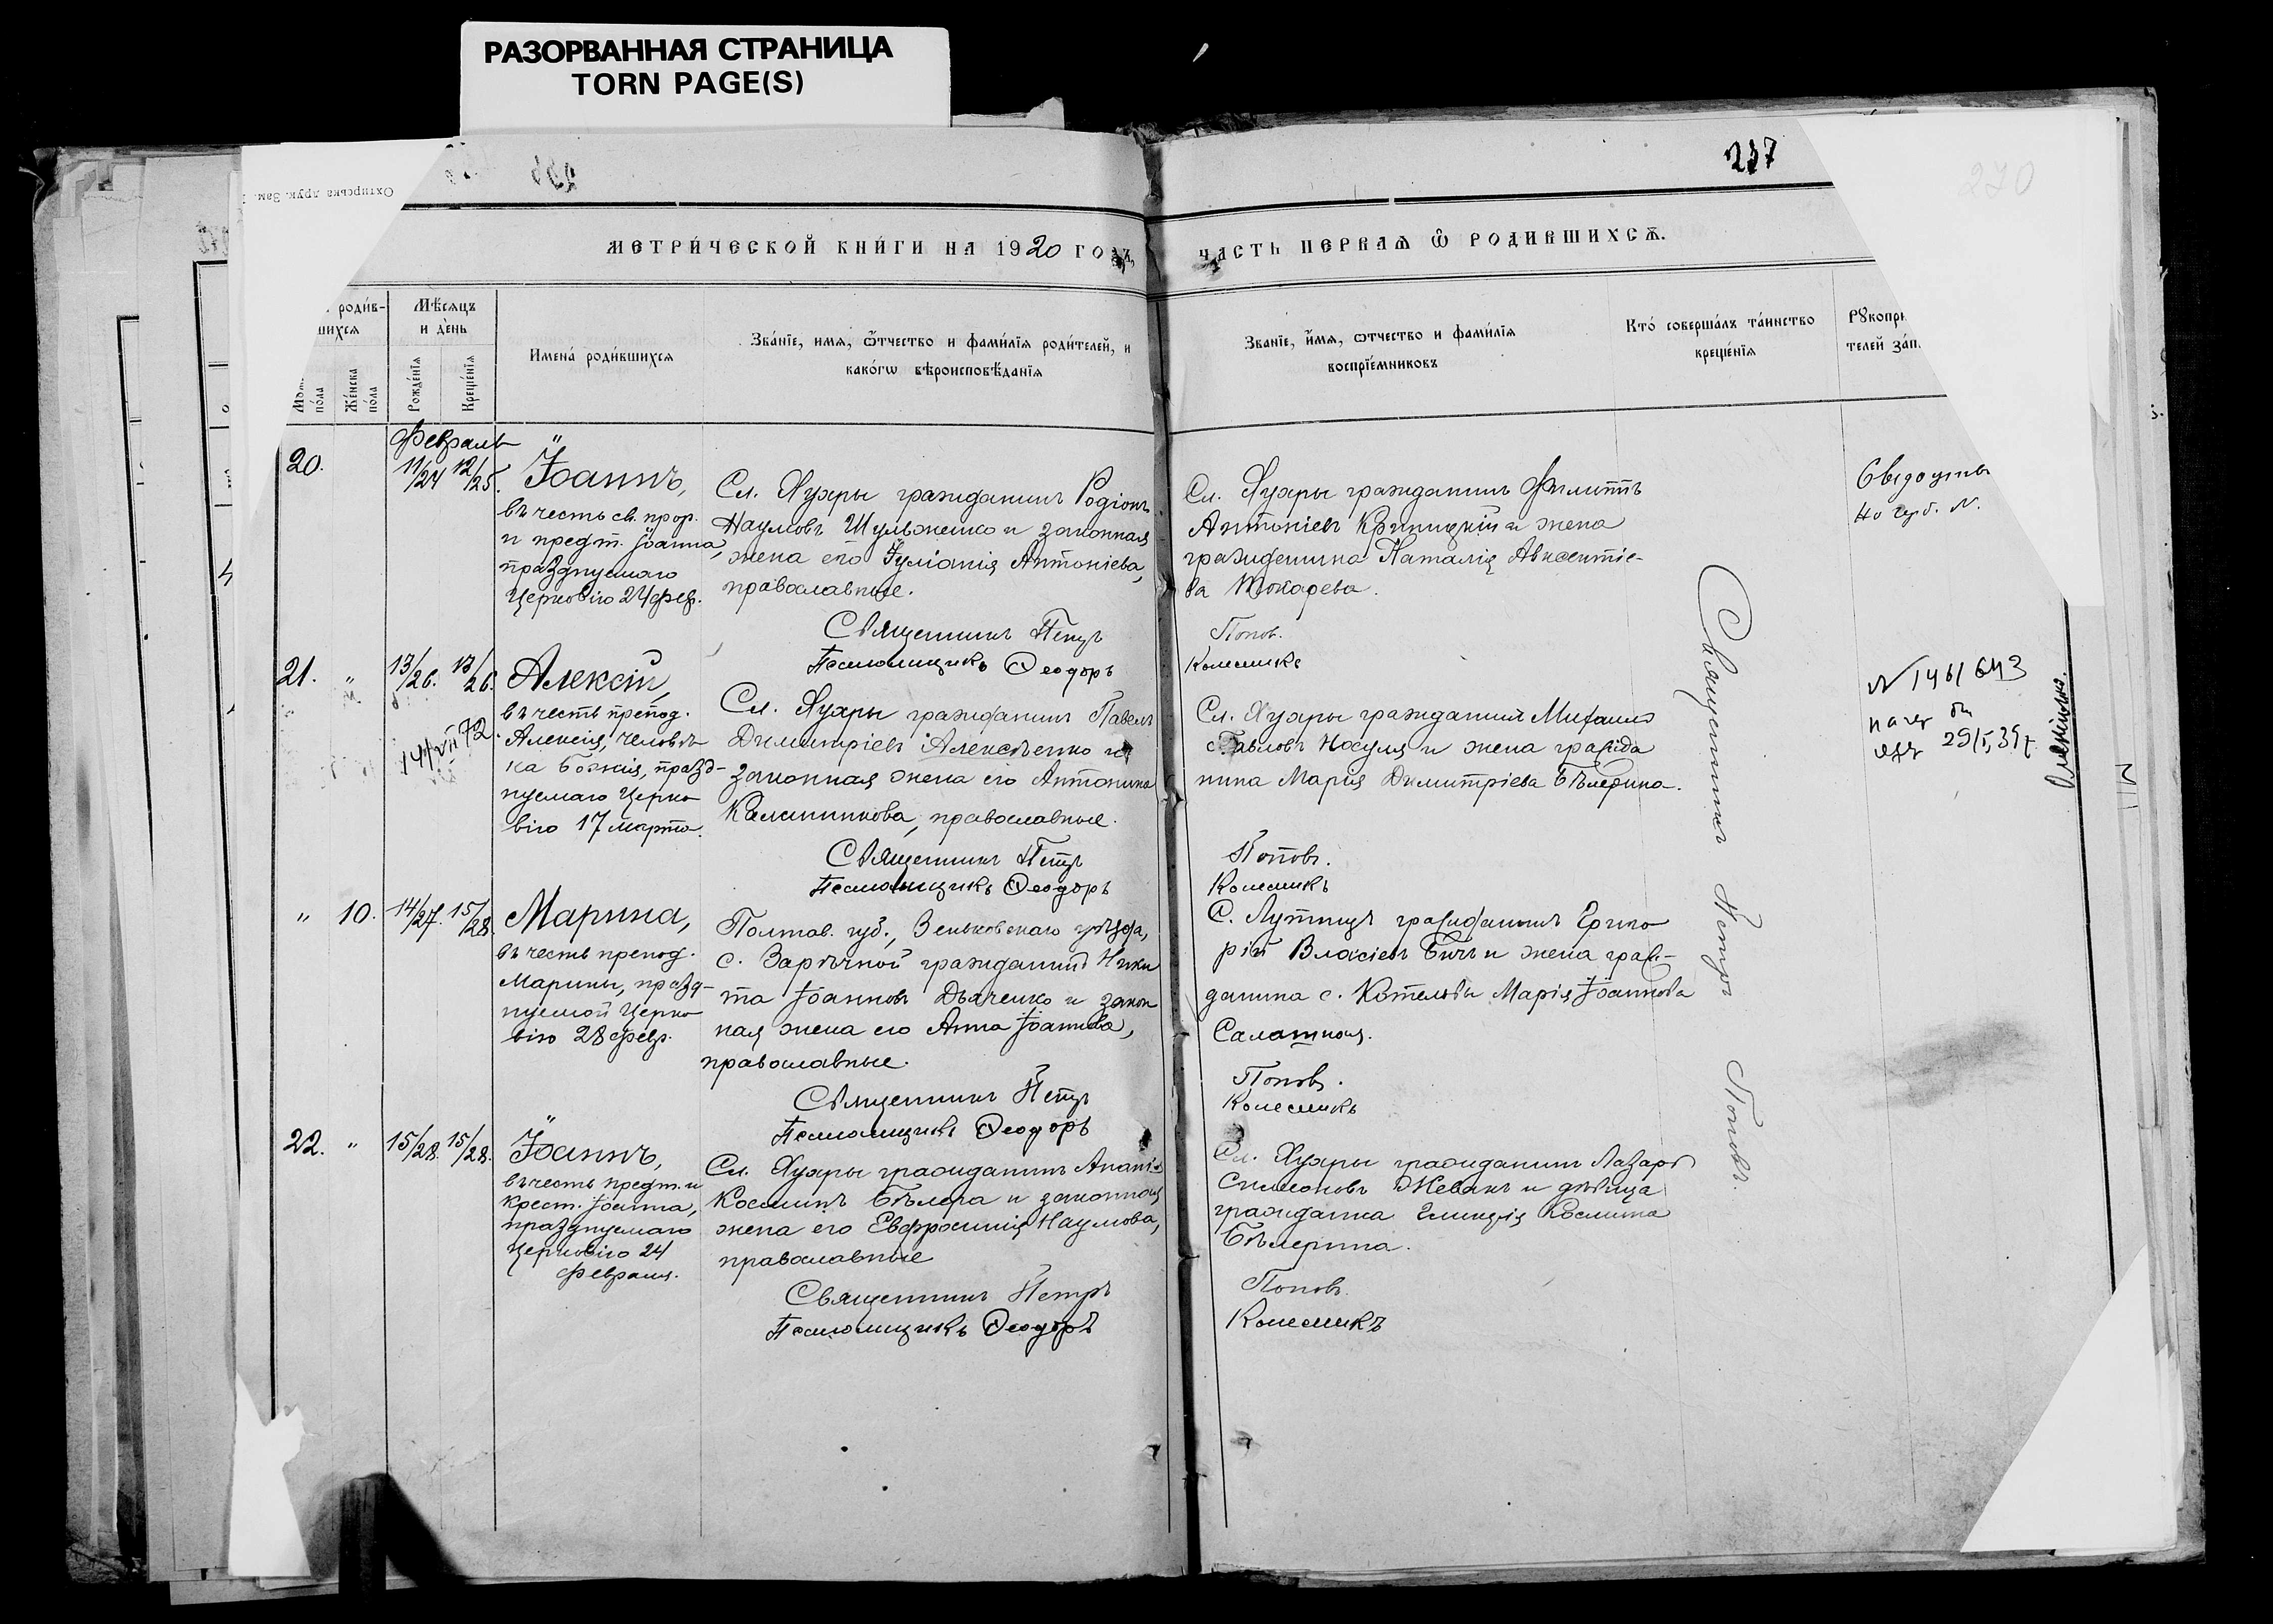 РАЗОРВАННАЯ СТРАНИЦА
TORN PAGE(S)
237
270
Охтирська друк. Зам.
МЕТРИ́ЧЕСКОЙ КНИ́ГИ НА 1920 ГОДЪ,
ЧАСТЬ ПЕРВАѦ Ѡ РОДИВШИХСѦ.
роди́в-
шихсѧ
Мѣ́сѧцъ
и де́нь
по́ла
Же́нска
по́ла
Рожде́нїѧ
Креще́нїѧ
Имена̀ роди́вшихсѧ
Зва́нїе, имѧ, ѻ҆́тчество и фами́лїѧ роди́телей, и
како́гѡ вѣроисповѣ́данїѧ
Зва́нїе, и҆́мѧ, ѻтчество и фами́лїѧ
воспрїе́мниковъ
Кто̀ соверша́лъ та́инство
креще́нїѧ
Рꙋкопри
телей за́п
Февраль
20.
11/24 12/25.
Іоаннъ,
въ честь св. прор.
и предт. Іоанна,
празднуемаго
Церковію 24 фев.
Сл. Хухры гражданинъ Родіонъ
Наумовъ Шульженко и законная
жена его Іуліанія Антоніева,
православные.
Священникъ Петръ
Псаломщикъ Ѳеодоръ
Сл. Хухры гражданинъ Филиппъ
Антоніевъ Криницкій и жена
гражданина Наталія Авксентіе-
ва Токарева.
Попов.
Колесникъ
Но черб. N.
21. "
13/26. 13/26.
14/VII 72
Алексій,
въ честь препод.
Алексія, человѣ-
ка Божія, празд-
нуемаго Церко-
вію 17 марта.
Сл. Хухры гражданинъ Павелъ
Димитріевъ Алексѣенко и
законная жена его Антонина
Калинникова, православные.
Священникъ Петръ
Псаломщикъ Ѳеодоръ
Сл. Хухры гражданинъ Михаилъ
Павловъ Носуля и жена гражда
нина Марія Димитріева
Поповъ.
Колесникъ
N 1461643
29/5, 39 г.
" 10.
14/27. 15/28.
Марина,
въ честь препод.
Марины, празд-
нуемой Церко-
вію 28 февр.
Полтав. губ., Зеньковскаго уѣзда,
с. Зарѣчной гражданинъ Ники
та Іоанновъ Дьяченко и закон
ная жена его Анна Іоаннова,
православные.
Священникъ Петръ
Псаломщикъ Ѳеодоръ
С. Лутищъ гражданинъ Григо
рій Власіевъ Бичъ и жена граж-
данина с. Котельвы Марія Іоаннова
Салатная.
Поповъ.
Колесникъ
22. "
15/28. 15/28.
Іоаннъ,
въ честь предт. и
крест. Іоанна,
празднуемаго
Церковію 24
февраля.
Сл. Хухры гражданинъ Ананія
Косминъ и законная
жена его Евфросинія Наумова,
православные
Священникъ Петръ
Псаломщикъ Ѳеодоръ
Сл. Хухры гражданинъ Лазарь
Симоновъ Жевакъ и дѣвица
гражданка Гликерія Космина
Поповъ.
Колесникъ
Священникъ Петръ Поповъ.